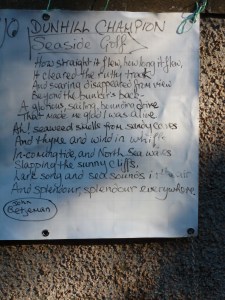 DUNHILL CHAMPION
Seaside Golf
How straight it flew, how long it flew,
It cleared the rutty track
And soaring disappeared from view
Beyond the bunker's back -
A glorious, sailing, bounding drive
That made me glad I was alive
Ah! seaweed smells from sandy caves
And thyme and wind in whiffs
In-coming tide, and North Sea waves
Slapping the sunny cliffs,
Lark song and sea sounds in the air
And splendour, splendour everywhere.
John
Betjeman